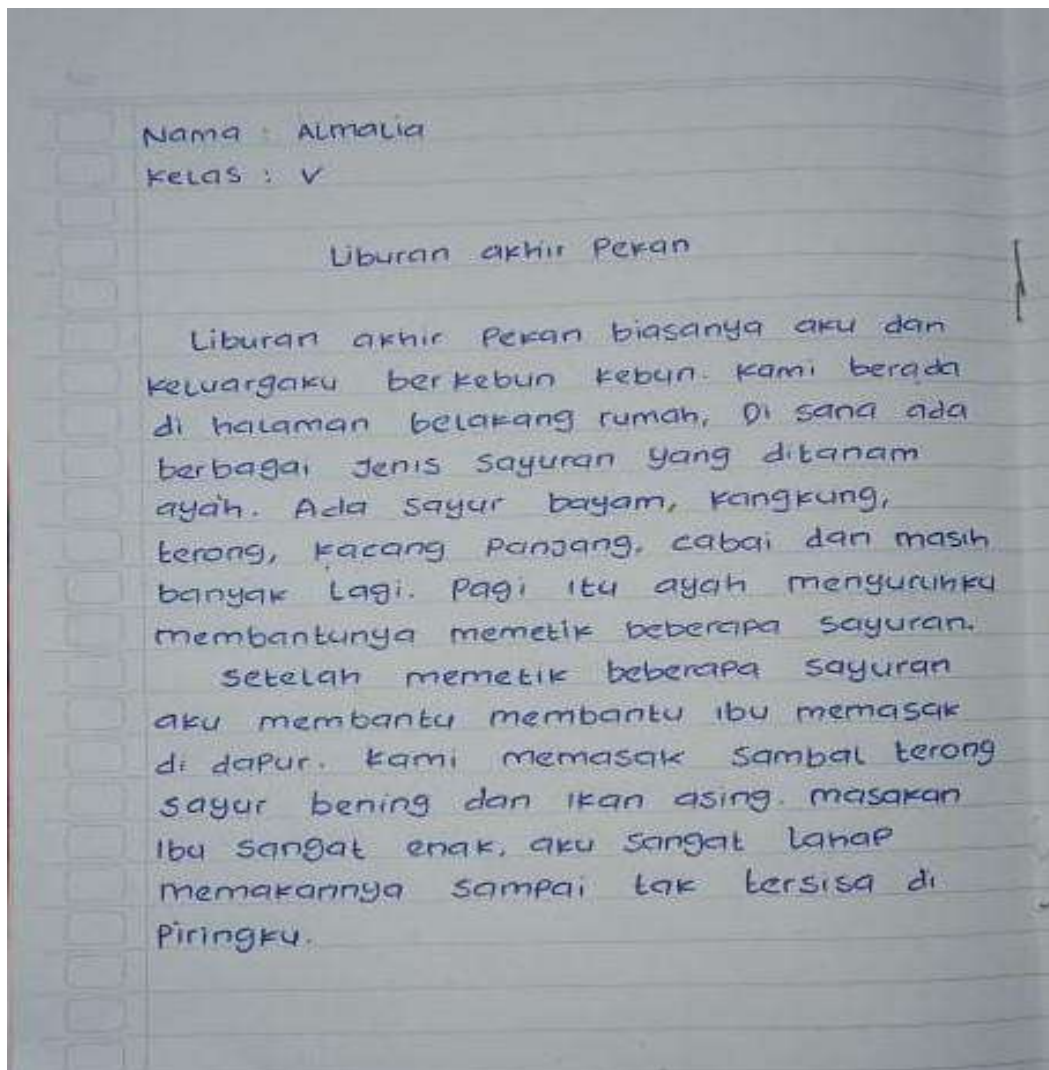 Nama : ALmaLia
Kelas : V
Liburan akhir Pekan
Liburan akhir Pekan biasanya aku dan
keluargaku berkebun kebun. Kami berada
di halaman belakang rumah, Di sana ada
berbagai Jenis Sayuran yang ditanam
ayah. Ada sayur bayam, kangkung,
terong, kacang Panjang, cabai dan masih
banyak Lagi. Pagi itu ayah menyuruhku
membantunya memetik beberapa sayuran.
setelah memetik beberapa sayuran
aku membantu membantu ibu memasak
di dapur. Kami memasak sambal terong
sayur bening dan ikan asing. masakan
ibu sangat enak, aku sangat Lahap
memakannya sampai tak tersisa di
Piringku.